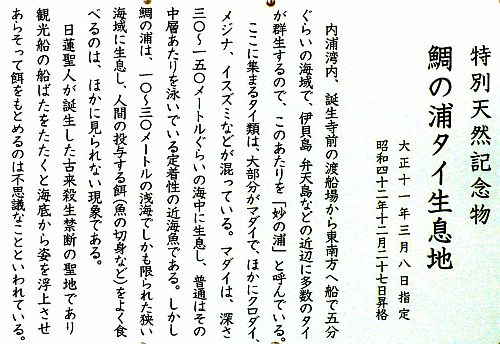 特別天然記念物
鯛の浦タイ生息地
大正十一年三月八日指定
昭和四十二年十二月二十七日昇格
内浦湾内、誕生寺前の渡船場から東南方へ船で五分
ぐらいの海域で、伊貝島 弁天島などの近辺に多数のタイ
が群生するので、このあたりを「妙の浦」と呼んでいる。
ここに集まるタイ類は、大部分がマダイで、ほかにクロダイ、
メジナ、イスズミなどが混っている。マダイは、深さ
三〇〜一五〇メートルぐらいの海中に生息し、普通はその
中層あたりを泳いでいる定着性の近海魚である。しかし
鯛の浦は、一〇〜三〇メートルの浅海でしかも限られた狭い
海域に生息し、人間の投与する餌(魚の切身など)をよく食
べるのは、ほかに見られない現象である。
日蓮聖人が誕生した古来殺生禁断の聖地であり
観光船の船ばたをたたくと海底から姿を浮上させ
あらそって餌をもとめるのは不思議なことといわれている。